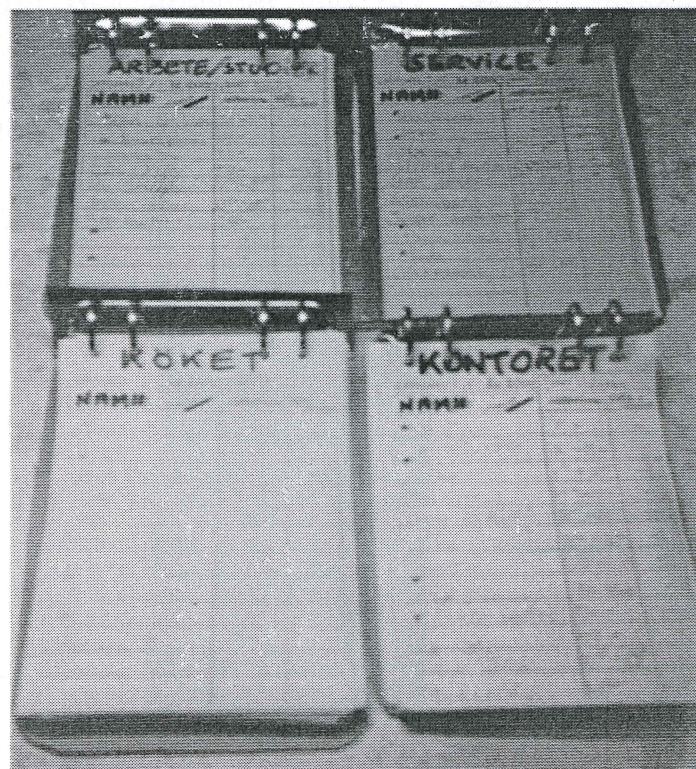 ARBETE/STUDIER
NAMN
SERVICE
NAMN
KÖKET
NAMN
KONTORET
NAMN